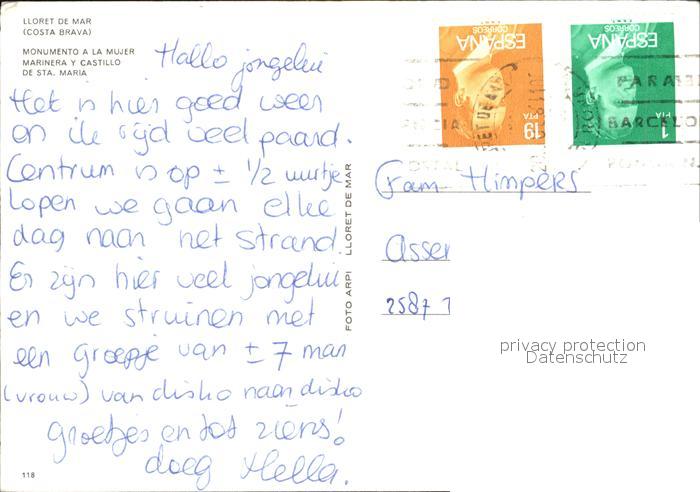 LLORET DE MAR
(COSTA BRAVA)
MONUMENTO A LA MUJER
MARINERA Y CASTILLO
DE STA. MARIA
Hallo jongelui
Het is hier goed weer
en ik rijd veel paard.
Centrum is op ± 1/2 uurtje
lopen we gaan elke
dag naar het strand.
Er zijn hier veel jongelui
en we struinen met
een groepje van ± 7 man
(vrouw) van disko naar disko
groetjes en tot ziens!
doeg Hella.
118
FOTO ARPI LLORET DE MAR
ESPAÑA
CORREOS
19
PTA
ESPAÑA
CORREOS
1
PTA
BARCELO
Fam Himpers
Assen
2587 1
privacy protection
Datenschutz